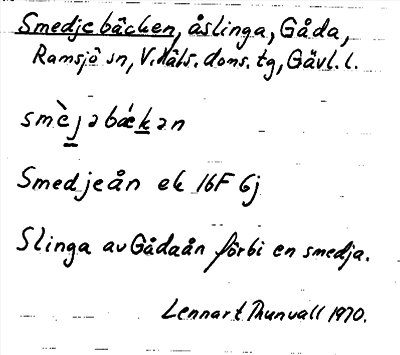 Smedjebäcken, åslinga, Gåda,
Ramsjö sn, V. Häls. doms. tg, Gävl. l.
smὲjəbækən
Smedjeån ek 16F 6j
Slinga av Gådaån förbi en smedja.
Lennart Thunvall 1970.